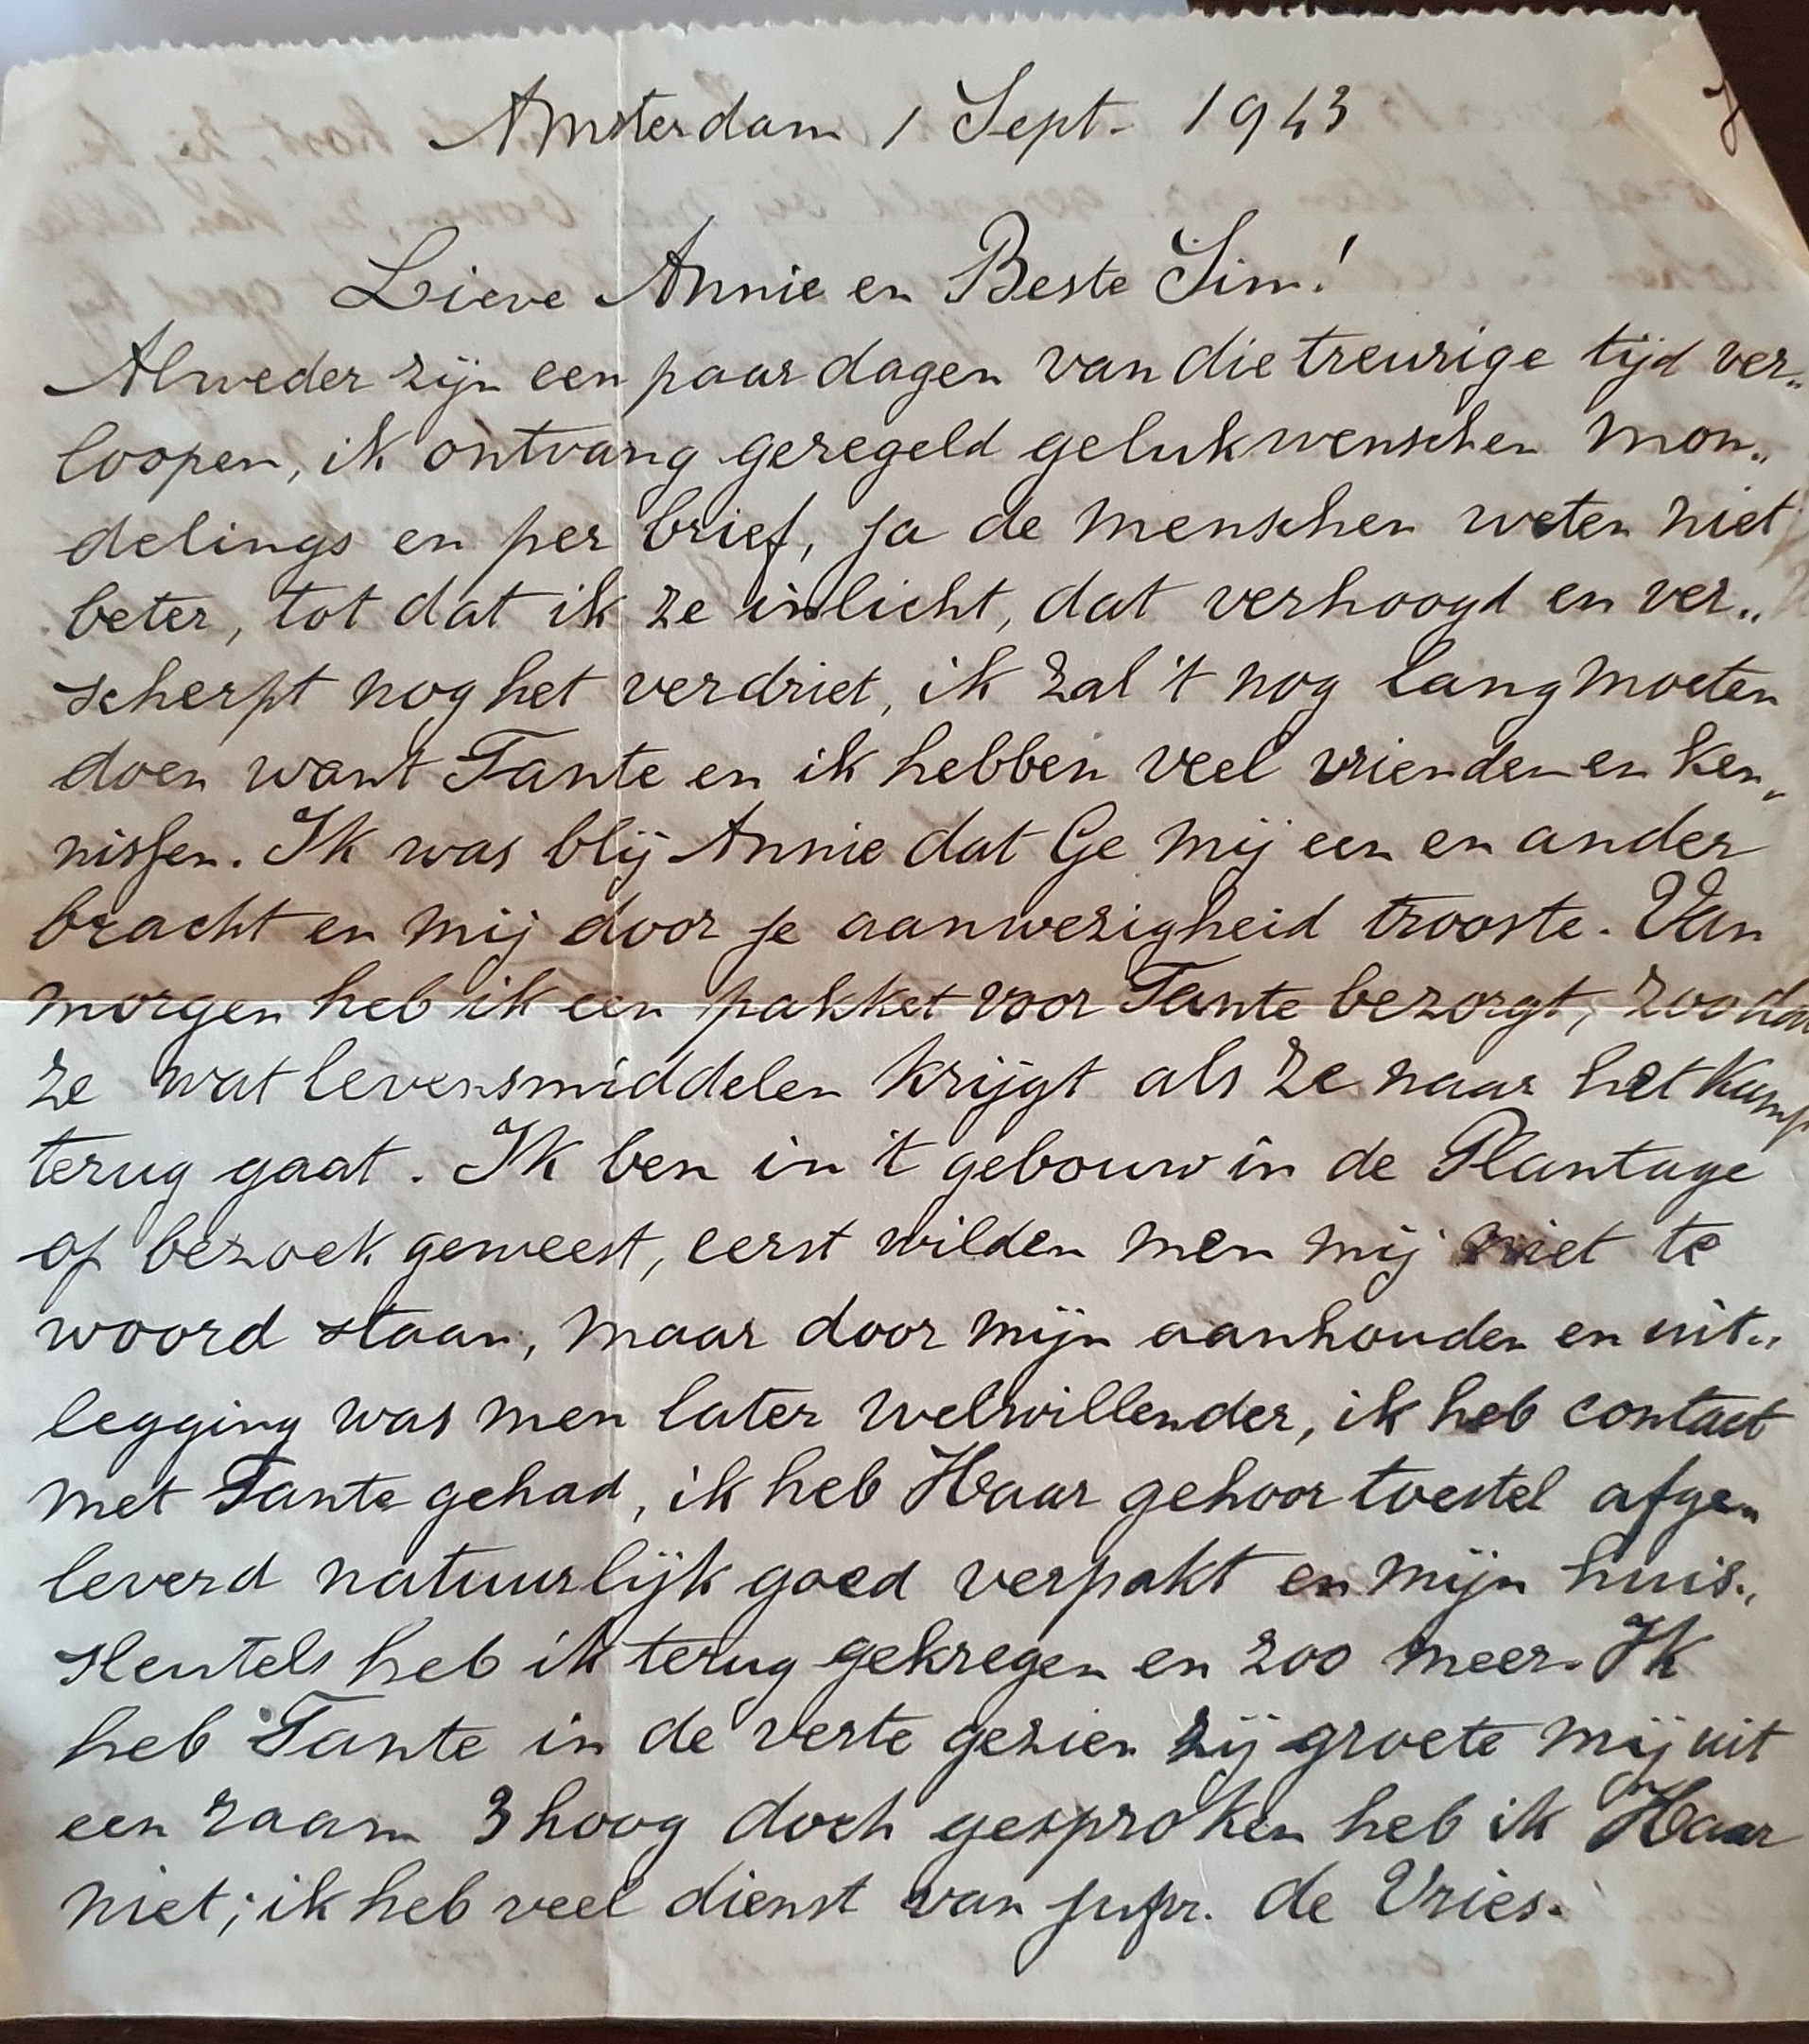 Amsterdam 1 Sept. 1943
Lieve Annie en Beste Sim!
Alweder zijn een paar dagen van die treurige tijd ver„
loopen, ik ontvang geregeld gelukwenschen mon„
delings en per brief, ja de menschen weten niet
beter, tot dat ik ze inlicht, dat verhoogd en ver„
scherpt nog het verdriet, ik zal 't nog lang moeten
doen want Tante en ik hebben veel vrienden en ken„
nissen. Ik was blij Annie dat Ge mij een en ander
bracht en mij door je aanwezigheid trooste. Van
morgen heb ik een pakket voor Tante bezorgt, zoodat
ze wat levensmiddelen krijgt als ze naar het Kamp
terug gaat. Ik ben in 't gebouw in de Plantage
op bezoek geweest, eerst wilden men mij niet te
woord staan, maar door mijn aanhouden en uit„
legging was men later welwillender, ik heb contact
met Tante gehad, ik heb Haar gehoor toestel afge„
leverd natuurlijk goed verpakt en mijn huis„
sleutels heb ik terug gekregen en zoo meer. Ik
heb Tante in de verte gezien zij groete mij uit
een raam 3 hoog doch gesproken heb ik Haar
niet; ik heb veel dienst van jufr. de Vries.